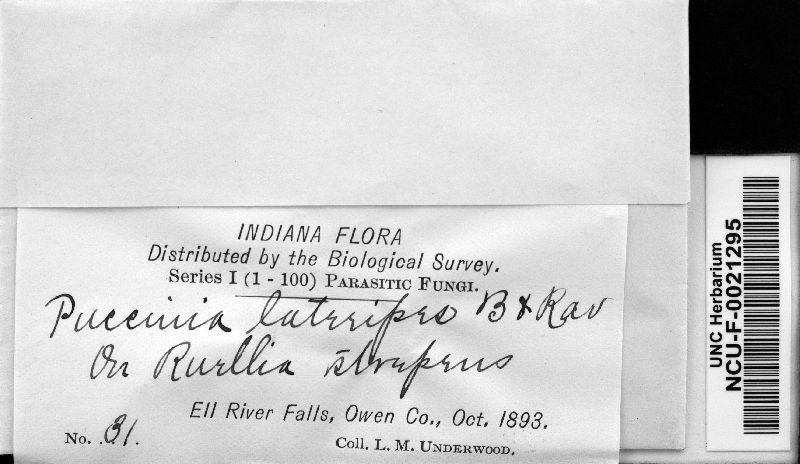 INDIANA FLORA
Distributed by the Biological Survey.
Series I (1 - 100) PARASITIC FUNGI.
Puccinia lateripes B & Rav
On Ruellia strepens
Ell River Falls, Owen Co., Oct. 1893.
No. 31.
Coll. L. M. UNDERWOOD.
UNC Herbarium
NCU-F-0021295